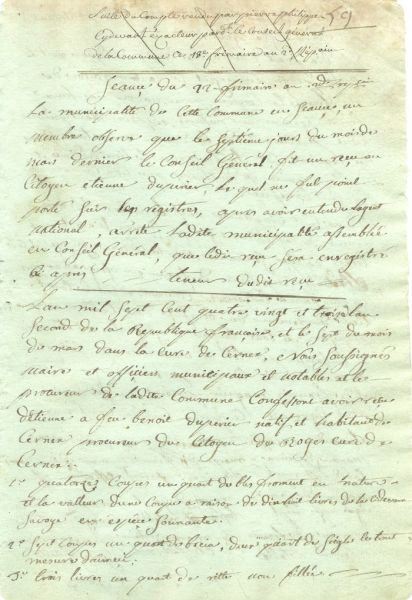 Suitte du Compte rendu par pierre philippe 59
Cydevant exacteur par d.t le Conseil général
de la Commune Ce 18e frimaire an 2e Rép.
Seance du 22 frimaire an
La municipalité de cette Commune en Seance, un
membre observe que le Septieme jours du mois de
mars dernier le Conseil Général fit un recu au
Citoyen etienne duperier, Lequel ne fut point
porté Sur les registres, apres avoir entendu Lagent
national, arrete Ladite municipalité assemblée
en Conseil Général, que ledit recu sera enregistré
cy après teneur dudit recu
Lan mil Sept Cent quatre vingt et treize lan
Second de la Republique francaise, et le Sept du mois
de mars dans la Cure de Cernex, Nous Soussignés
Maire et officiers municipaux et notables et le
procureur de ladite Commune Confessons avoir recu
dEtienne a feu benoit duperier natif et habitant de
Cernex procureur du Citoyen des Roges Curé de
Cernex:
1° quatorze Coupes un quart de bles froment en nature
et la valleur dune Coupe a raison de dixhuit livres de
Savoye en espèce Sonnante.
2° Sept Coupes un quart de becia, dun quart de Seigle le tout
mesure dannecy.
3° trois livres un quart de ritte non fillée